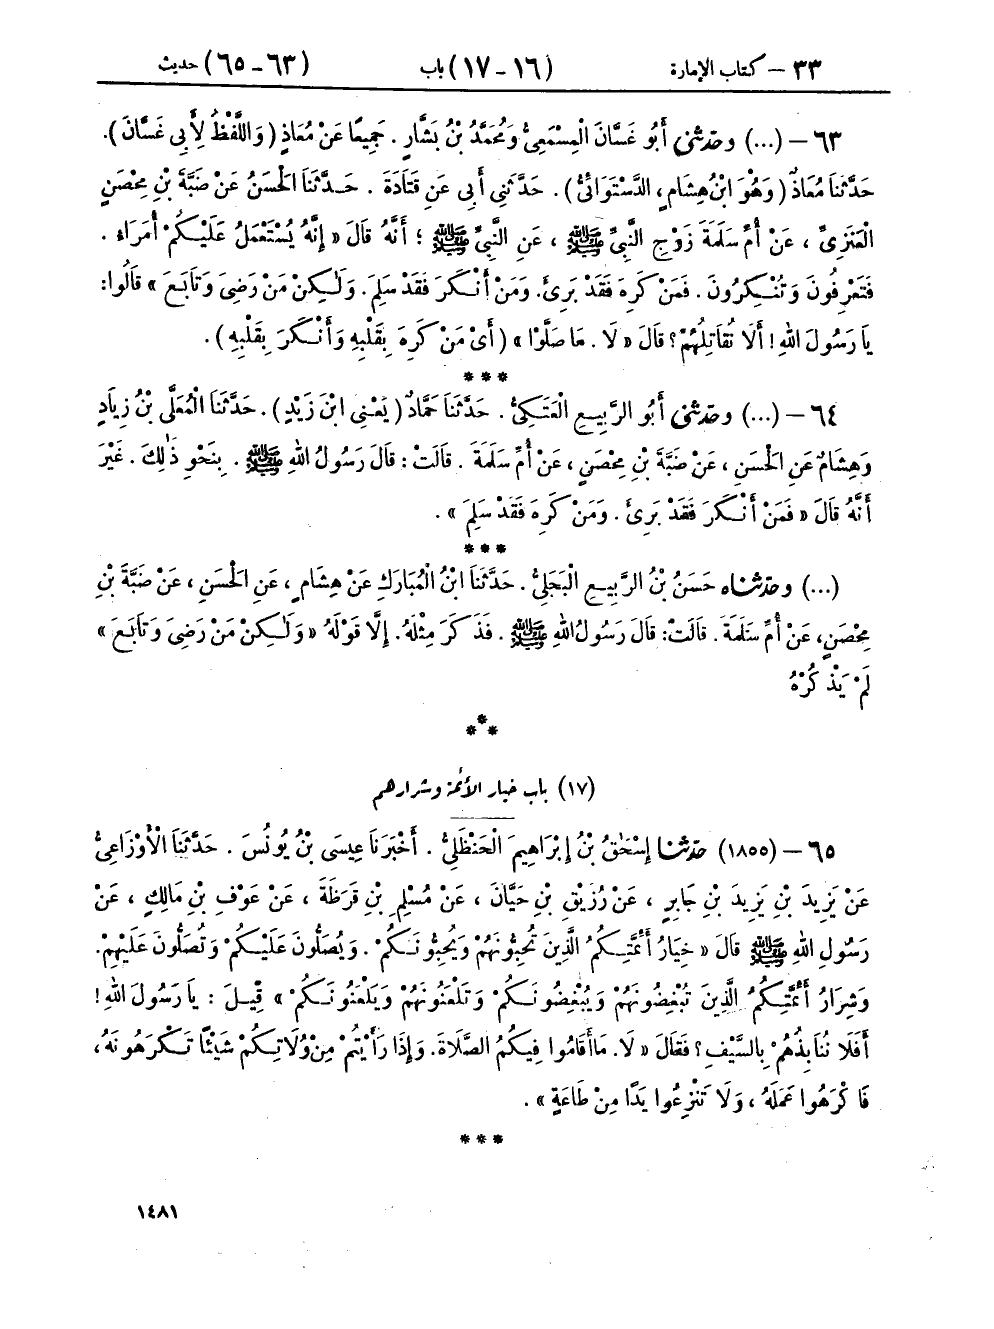 ٣٣ – كتاب الإمارة (١٦ – ١٧) باب (٦٣ – ٦٥) حديث
٦٣ – (...) وحدثنى أَبُو غَسَّانَ الْمِسْمَعِىُّ وَمُحَمَّدُ بْنُ بَشَّارٍ . جَمِيعًا عَنْ مُعَاذٍ (وَاللَّفْظُ لِأَبِى غَسَّانَ).
حَدَّثَنَا مُعَاذٌ (وَهُوَ ابْنُ هِشَامٍ، الدَّسْتَوَائِىُّ). حَدَّثَنِى أَبِى عَنِ قَتَادَةَ . حَدَّثَنَا الْحَسَنُ عَنْ ضَبَّةَ بْنِ مِحْصَنٍ
الْعَنَزِىِّ ، عَنْ أُمِّ سَلَمَةَ زَوْجِ النَّبِىِّ ﷺ ، عَنِ النَّبِىِّ ﷺ ؛ أَنَّهُ قَالَ « إِنَّهُ يُسْتَعْمَلُ عَلَيْكُمْ أُمَرَاءُ .
فَتَعْرِفُونَ وَتُنْكِرُونَ . فَمَنْ كَرِهَ فَقَدْ بَرِئَ. وَمَنْ أَنْكَرَ فَقَدْ سَلِمَ. وَلَٰكِنْ مَنْ رَضِىَ وَتَابَعَ » قَالُوا:
يَا رَسُولَ اللهِ! أَلَا نُقَاتِلُهُمْ؟ قَالَ « لَا . مَا صَلَّوْا » (أَىْ مَنْ كَرِهَ بِقَلْبِهِ وَأَنْكَرَ بِقَلْبِهِ).
***
٦٤ – (...) وحدثنى أَبُو الرَّبِيعِ الْعَتَكِىُّ . حَدَّثَنَا حَمَّادٌ (يَعْنِى ابْنَ زَيْدٍ). حَدَّثَنَا الْمُعَلَّى بْنُ زِيَادٍ
وَهِشَامٌ عَنِ الْحَسَنِ ، عَنْ ضَبَّةَ بْنِ مِحْصَنٍ ، عَنْ أُمِّ سَلَمَةَ . قَالَتْ : قَالَ رَسُولُ اللهِ ﷺ . بِنَحْوِ ذَٰلِكَ . غَيْرَ
أَنَّهُ قَالَ « فَمَنْ أَنْكَرَ فَقَدْ بَرِئَ . وَمَنْ كَرِهَ فَقَدْ سَلِمَ » .
***
(...) وحدثناه حَسَنُ بْنُ الرَّبِيعِ الْبَجَلِىُّ . حَدَّثَنَا ابْنُ الْمُبَارَكِ عَنْ هِشَامٍ ، عَنِ الْحَسَنِ ، عَنْ ضَبَّةَ بْنِ
مِحْصَنٍ، عَنْ أُمِّ سَلَمَةَ . قَالَتْ: قَالَ رَسُولُ اللهِ ﷺ . فَذَكَرَ مِثْلَهُ. إِلَّا قَوْلَهُ « وَلَٰكِنْ مَنْ رَضِىَ وَتَابَعَ »
لَمْ يَذْكُرْهُ
***
(١٧) باب خيار الأئمة وشرارهم
٦٥ – (١٨٥٥) حدثنا إِسْحَٰقُ بْنُ إِبْرَاهِيمَ الْحَنْظَلِىُّ . أَخْبَرَنَا عِيسَى بْنُ يُونُسَ . حَدَّثَنَا الْأَوْزَاعِىُّ
عَنْ يَزِيدَ بْنِ يَزِيدَ بْنِ جَابِرٍ ، عَنْ رُزَيْقِ بْنِ حَيَّانَ ، عَنْ مُسْلِمِ بْنِ قَرَظَةَ ، عَنْ عَوْفِ بْنِ مَالِكٍ ، عَنْ
رَسُولِ اللهِ ﷺ قَالَ « خِيَارُ أَئِمَّتِكُمُ الَّذِينَ تُحِبُّونَهُمْ وَيُحِبُّونَكُمْ . وَيُصَلُّونَ عَلَيْكُمْ وَتُصَلُّونَ عَلَيْهِمْ.
وَشِرَارُ أَئِمَّتِكُمُ الَّذِينَ تُبْغِضُونَهُمْ وَيُبْغِضُونَكُمْ وَتَلْعَنُونَهُمْ وَيَلْعَنُونَكُمْ » قِيلَ : يَا رَسُولَ اللهِ!
أَفَلَا نُنَابِذُهُمْ بِالسَّيْفِ؟ فَقَالَ « لَا. مَا أَقَامُوا فِيكُمُ الصَّلَاةَ. وَإِذَا رَأَيْتُمْ مِنْ وُلَاتِكُمْ شَيْئًا تَكْرَهُونَهُ،
فَاكْرَهُوا عَمَلَهُ ، وَلَا تَنْزِعُوا يَدًا مِنْ طَاعَةٍ » .
***
١٤٨١